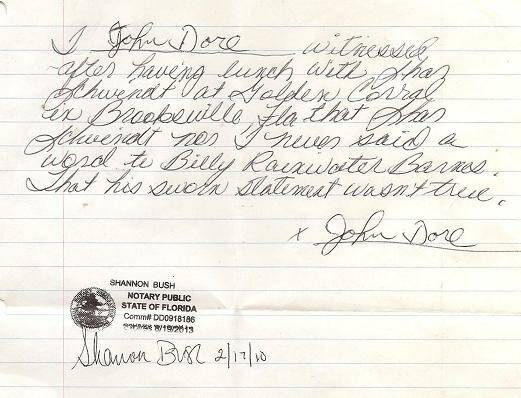 I John Dore witnessed
after having lunch with Shas
Schwendt at Golden Corral
in Brooksville, Fla that Shas
Schwendt nor I never said a
word to Billy Rainwater Barnes.
That his sworn statement wasn't true.
x John Dore
SHANNON BUSH
NOTARY PUBLIC
STATE OF FLORIDA
Comm# DD0918186
Expires 8/19/2013
Shannon Bush 2/17/10